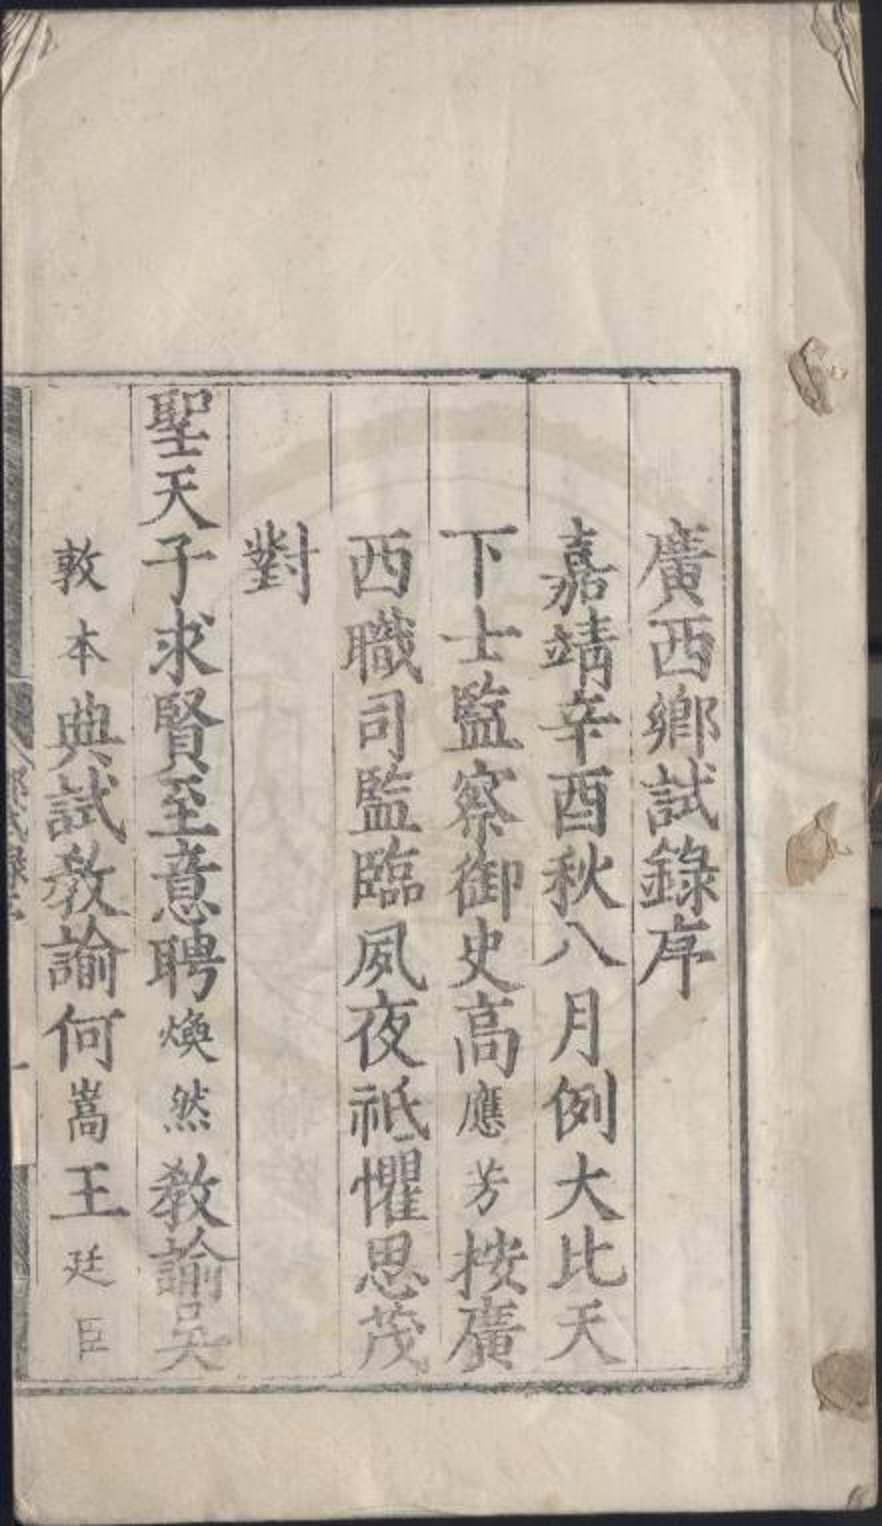 廣西鄉試錄序
嘉靖辛酉秋八月例大比天
下士監察御史高應芳按廣
西職司監臨夙夜祗懼思茂
對
聖天子求賢至意聘煥然教諭吳
敦本典試教諭何嵩王廷臣